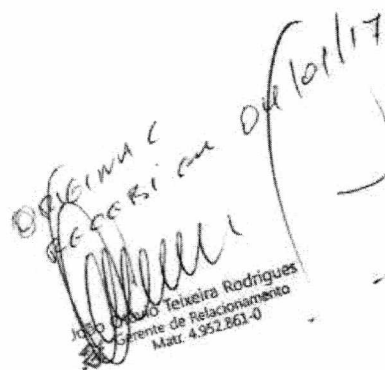 ORIGINAL
RECEBI em 04/01/17
João Teixeira Rodrigues
Gerente de Relacionamento
Matr. 4.952.861-0